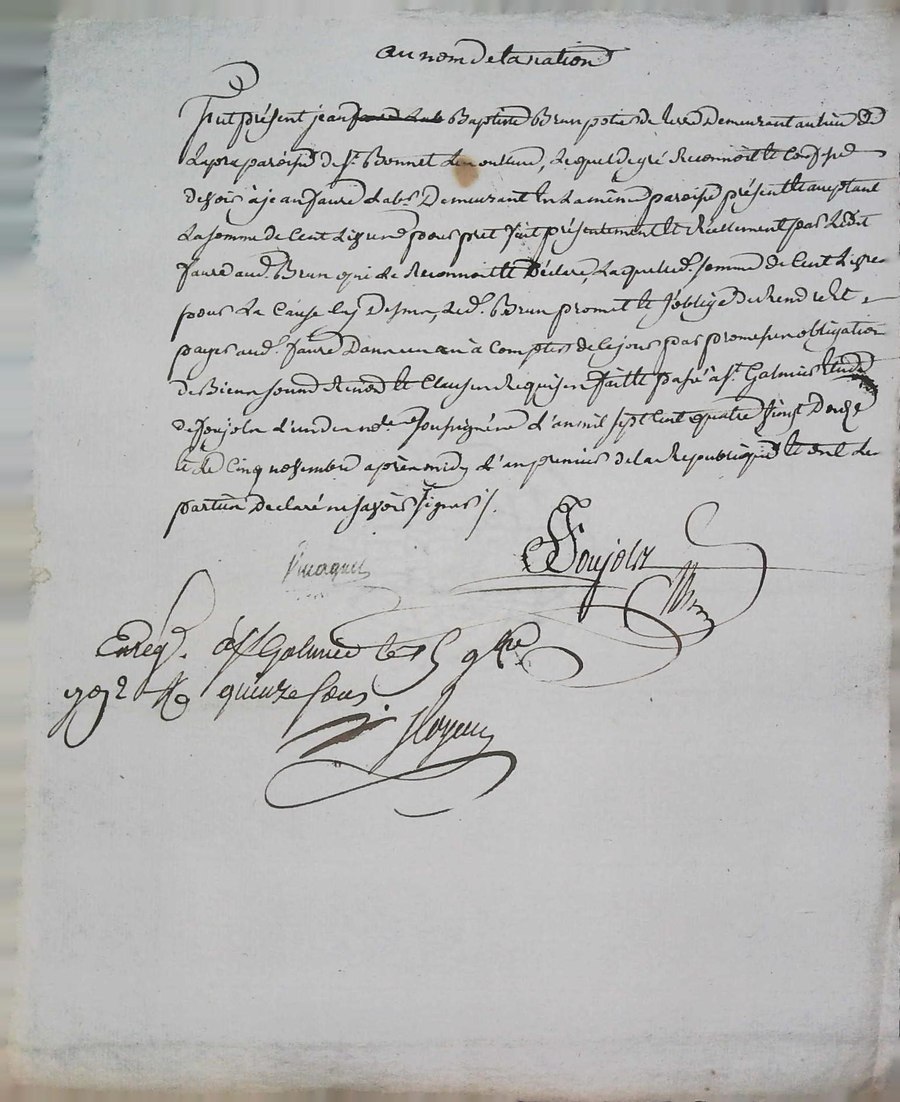 au nom de la nation
Fut présent jean faure Labs Baptiste Brun potier de terre Demeurant au lieu de
Lapra paroisse de St Bonnet Les oules, Lequel de gré Reconnoit et Confesse
devoir à jean faure Labs. Demeurant en La même paroisse présent et aceptant
La somme de Cent Livres pour pret fait présentement et Réellement par Ledit
faure aud. Brun qui Le Reconnoit et Déclare, Laquelle d. somme de Cent Livres
pour La Cause Cy Dessus, Led. Brun promet et s'oblige de Rendre Et
payer aud. faure Dans un an à Compter de Ce jour par promesse obligation
de Biens soumis Renon. et Clauses Requises fait et passé à St Galmier Etude
de Soujols l'un des no.res soussignés L'an mil sept Cent quatre Vingt Douze
et Le Cinq novembre après midy L'an premier de La Republique et ont Les
parties Declaré ne savoir signer /.
Soujols
Enreg. à St Galmier le 5 9bre
1792 R quinze sous